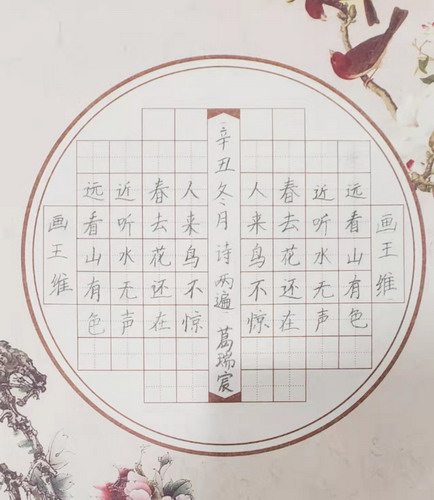 画王维
远看山有色
近听水无声
春去花还在
人来鸟不惊
辛丑冬月诗两遍葛瑞宸
画王维
远看山有色
近听水无声
春去花还在
人来鸟不惊